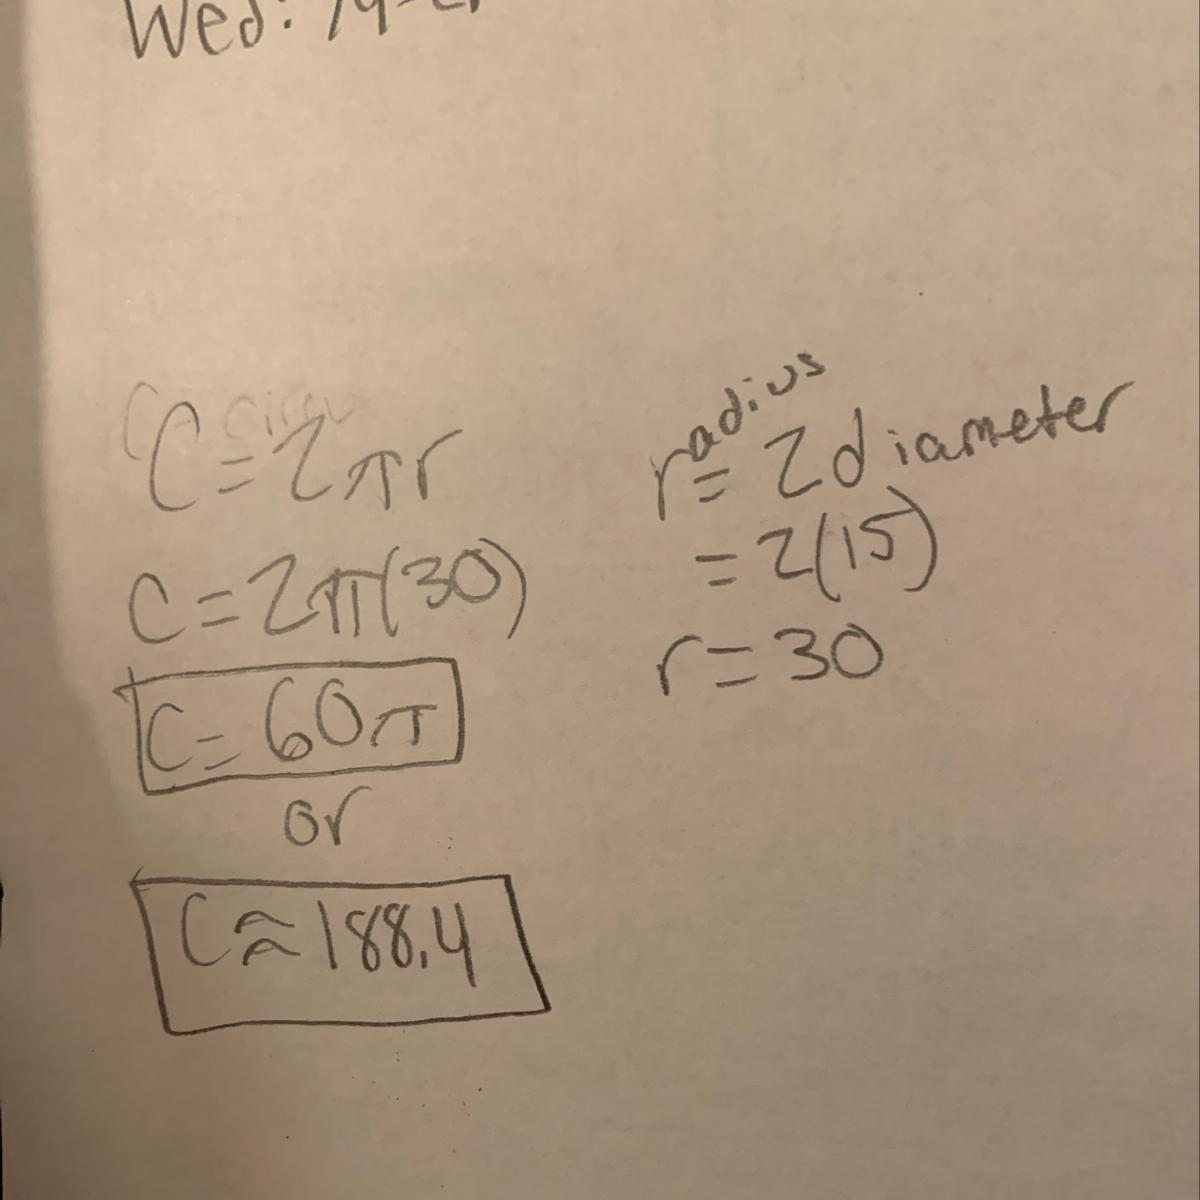 Wed:
C = 2πr
C = 2π(30)
C = 60π
or
C ≈ 188.4
radius
r = 2diameter
= 2(15)
r = 30